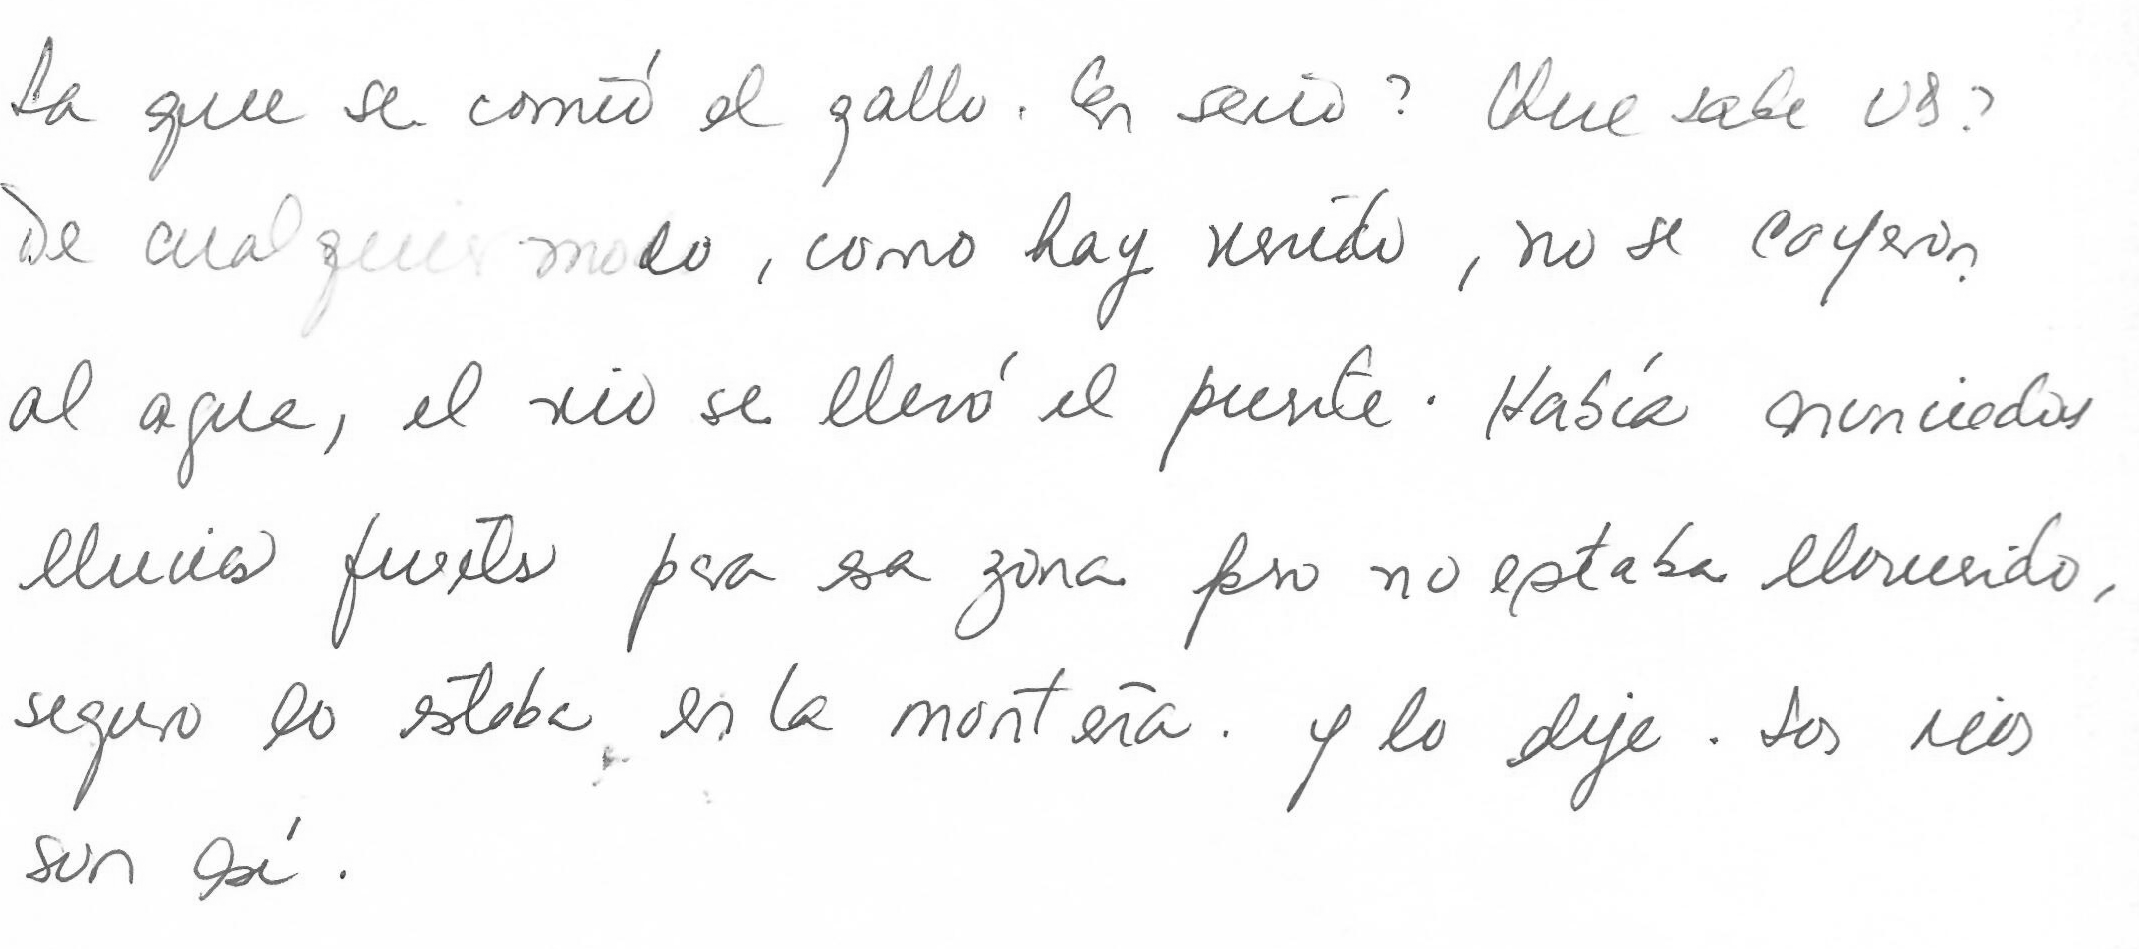 La que se comió el gallo. En serio? Que sabe Ud?
De cualquier modo, como hay venido, no se cayeron
al agua, el rio se llevó el puente. Había anunciadas
lluvias fuertes para esa zona pero no estaba lloviendo,
seguro lo estaba en la montaña. y lo dije. Los rios
son así.